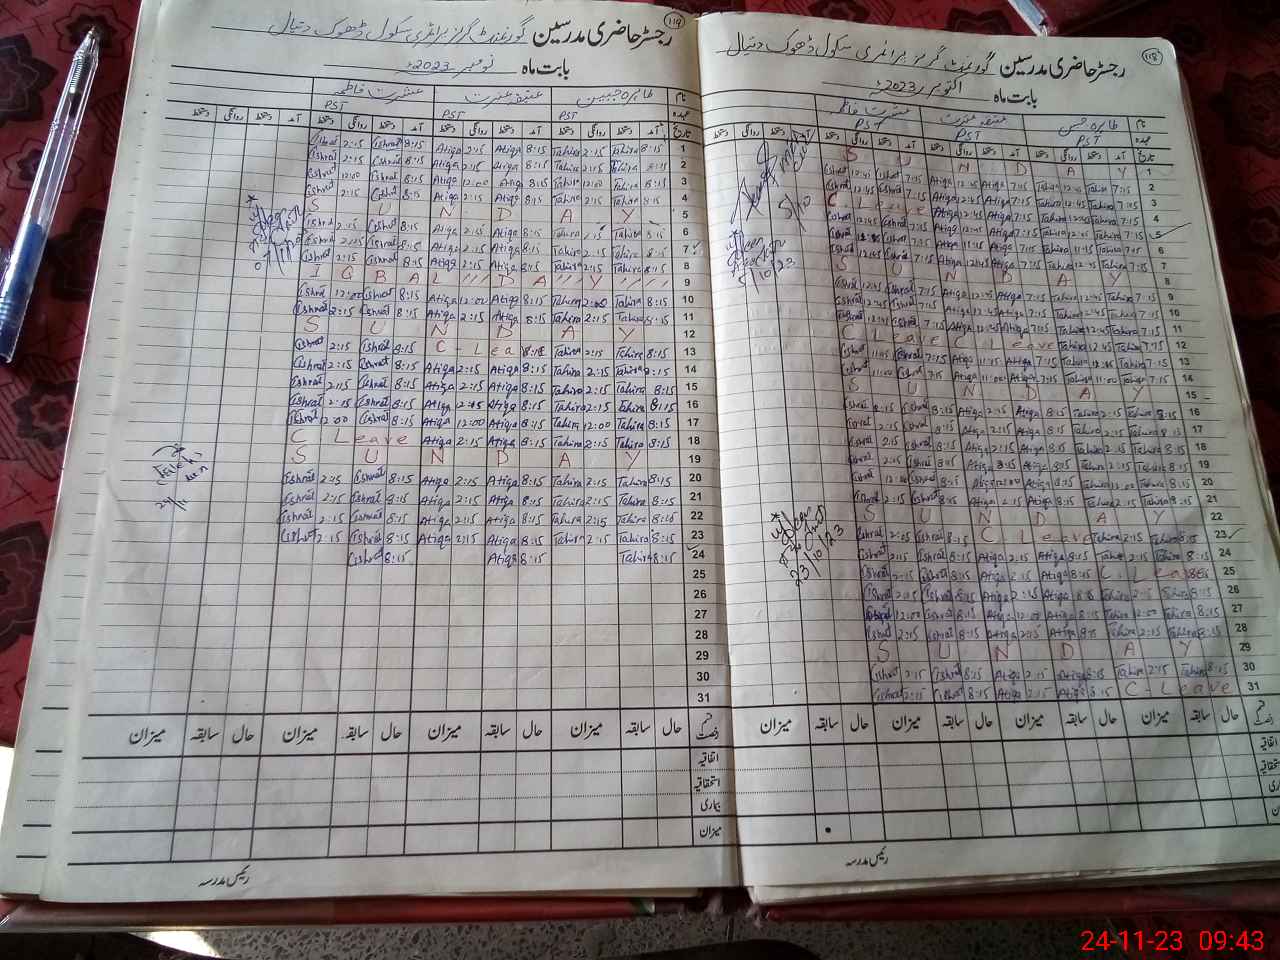 118
رجسٹر حاضری مدرسین گورنمنٹ گرلز پرائمری سکول ڈھوک دتیال
بابت ماہ اکتوبر 2023ء
نام طاہرہ جبیں عشرت فاطمہ
عہدہ PST PST PST
تاریخ آمد دستخط روانگی دستخط آمد دستخط روانگی دستخط آمد دستخط روانگی دستخط آمد دستخط روانگی دستخط
1 SUNDAY
2 7:15 Tahira 12:45 Tahira 7:15 Atiqa 12:45 Atiqa 7:15 Ishrat 12:45 Ishrat
3 7:15 Tahira 12:45 Tahira 7:15 Atiqa 12:45 Atiqa 7:15 Ishrat 12:45 Ishrat
4 7:15 Tahira 12:45 Tahira 7:15 Atiqa 12:45 Atiqa C Leave
5 7:15 Tahira 12:45 Tahira 7:15 Atiqa 12:45 Atiqa 7:15 Ishrat 12:45 Ishrat
6 7:15 Tahira 11:15 Tahira 7:15 Atiqa 11:15 Atiqa 7:15 Ishrat
7 7:15 Tahira 12:45 Tahira 7:15 Atiqa 12:45 Atiqa 7:15 Ishrat 12:45 Ishrat
8 SUNDAY
9 7:15 Tahira 12:45 Tahira 7:15 Atiqa 12:45 Atiqa 7:15 Ishrat 12:45 Ishrat
10 7:15 Tahira 12:45 Tahira 7:15 Atiqa 12:45 Atiqa 7:15 Ishrat 12:45 Ishrat
11 7:15 Tahira 12:45 Tahira 7:15 Atiqa 12:45 Atiqa 7:15 Ishrat 12:45 Ishrat
12 7:15 Tahira 12:45 Tahira C Leave C Leave
13 7:15 Tahira 11:15 Tahira 7:15 Atiqa 11:15 Atiqa 7:15 Ishrat 11:15 Ishrat
14 7:15 Tahira 11:00 Tahira 7:15 Atiqa 11:00 Atiqa 7:15 Ishrat 11:00 Ishrat
15 SUNDAY
16 8:15 Tahira 2:15 Tahira 8:15 Atiqa 2:15 Atiqa 8:15 Ishrat 2:15 Ishrat
17 8:15 Tahira 2:15 Tahira 8:15 Atiqa 2:15 Atiqa 8:15 Ishrat 2:15 Ishrat
18 8:15 Tahira 2:15 Tahira 8:15 Atiqa 2:15 Atiqa 8:15 Ishrat 2:15 Ishrat
19 8:15 Tahira 2:15 Tahira 8:15 Atiqa 2:15 Atiqa 8:15 Ishrat 2:15 Ishrat
20 8:15 Tahira 12:00 Tahira 8:15 Atiqa 12:00 Atiqa 8:15 Ishrat Ishrat
21 8:15 Tahira 2:15 Tahira 8:15 Atiqa 2:15 Atiqa 8:15 Ishrat 2:15 Ishrat
22 SUNDAY
23 8:15 Tahira 2:15 Tahira C Leave 8:15 Ishrat 2:15 Ishrat
24 8:15 Tahira 2:15 Tahira 8:15 Atiqa 2:15 Atiqa 8:15 Ishrat 2:15 Ishrat
25 C Leave 8:15 Atiqa 2:15 Atiqa 8:15 Ishrat 2:15 Ishrat
26 8:15 Tahira 2:15 Tahira 8:15 Atiqa 2:15 Atiqa 8:15 Ishrat 2:15 Ishrat
27 8:15 Tahira 12:00 Tahira 8:15 Atiqa 12:00 Atiqa 8:15 Ishrat 12:00 Ishrat
28 8:15 Tahira 2:15 Tahira 8:15 Atiqa 2:15 Atiqa 8:15 Ishrat 2:15 Ishrat
29 SUNDAY
30 8:15 Tahira 2:15 Tahira 8:15 Atiqa 2:15 Atiqa 8:15 Ishrat 2:15 Ishrat
31 C-Leave 8:15 Atiqa 2:15 Atiqa 8:15 Ishrat 2:15 Ishrat
5/10
5/10/23
23/10/23
قسم رخصت حال سابقہ میزان حال سابقہ میزان حال سابقہ میزان حال سابقہ میزان
اتفاقیہ
استحقاقیہ
بیماری
میزان
رئیس مدرسہ
119
رجسٹر حاضری مدرسین گورنمنٹ گرلز پرائمری سکول ڈھوک دتیال
بابت ماہ نومبر 2023ء
نام طاہرہ جبیں عشرت فاطمہ
عہدہ PST PST PST
تاریخ آمد دستخط روانگی دستخط آمد دستخط روانگی دستخط آمد دستخط روانگی دستخط آمد دستخط روانگی دستخط
1 8:15 Tahira 2:15 Tahira 8:15 Atiqa 2:15 Atiqa 8:15 Ishrat 2:15 Ishrat
2 8:15 Tahira 2:15 Tahira 8:15 Atiqa 2:15 Atiqa 8:15 Ishrat 2:15 Ishrat
3 8:15 Tahira 12:00 Tahira 8:15 Atiqa 12:00 Atiqa 8:15 Ishrat 12:00 Ishrat
4 8:15 Tahira 2:15 Tahira 8:15 Atiqa 2:15 Atiqa 8:15 Ishrat 2:15 Ishrat
5 SUNDAY
6 8:15 Tahira 2:15 Tahira 8:15 Atiqa 2:15 Atiqa 8:15 Ishrat 2:15 Ishrat
7 8:15 Tahira 2:15 Tahira 8:15 Atiqa 2:15 Atiqa 8:15 Ishrat 2:15 Ishrat
8 8:15 Tahira 2:15 Tahira 8:15 Atiqa 2:15 Atiqa 8:15 Ishrat 2:15 Ishrat
9 IQBAL DAY
10 8:15 Tahira 2:00 Tahira 8:15 Atiqa 12:00 Atiqa 8:15 Ishrat 12:00 Ishrat
11 8:15 Tahira 2:15 Tahira 8:15 Atiqa 2:15 Atiqa 8:15 Ishrat 2:15 Ishrat
12 SUNDAY
13 8:15 Tahira 2:15 Tahira C-Leave 8:15 Ishrat 2:15 Ishrat
14 2:15 Tahira 2:15 Tahira 8:15 Atiqa 2:15 Atiqa 8:15 Ishrat 2:15 Ishrat
15 8:15 Tahira 2:15 Tahira 8:15 Atiqa 2:15 Atiqa 8:15 Ishrat 2:15 Ishrat
16 8:15 Tahira 2:15 Tahira 8:15 Atiqa 12:15 Atiqa 8:15 Ishrat 2:15 Ishrat
17 8:15 Tahira 12:00 Tahira 8:15 Atiqa 12:00 Atiqa 8:15 Ishrat 12:00 Ishrat
18 8:15 Tahira 2:15 Tahira 8:15 Atiqa 2:15 Atiqa C Leave
19 SUNDAY
20 8:15 Tahira 2:15 Tahira 8:15 Atiqa 2:15 Atiqa 8:15 Ishrat 2:15 Ishrat
21 8:15 Tahira 2:15 Tahira 8:15 Atiqa 2:15 Atiqa 8:15 Ishrat 2:15 Ishrat
22 8:15 Tahira 2:15 Tahira 8:15 Atiqa 2:15 Atiqa 8:15 Ishrat 2:15 Ishrat
23 8:15 Tahira 2:15 Tahira 8:15 Atiqa 2:15 Atiqa 8:15 Ishrat 2:15 Ishrat
24 8:15 Tahira 8:15 Atiqa 8:15 Ishrat
25
26
27
28
29
30
31
قسم رخصت حال سابقہ میزان حال سابقہ میزان حال سابقہ میزان حال سابقہ میزان
اتفاقیہ
استحقاقیہ
بیماری
میزان
رئیس مدرسہ
24-11-23 09:43